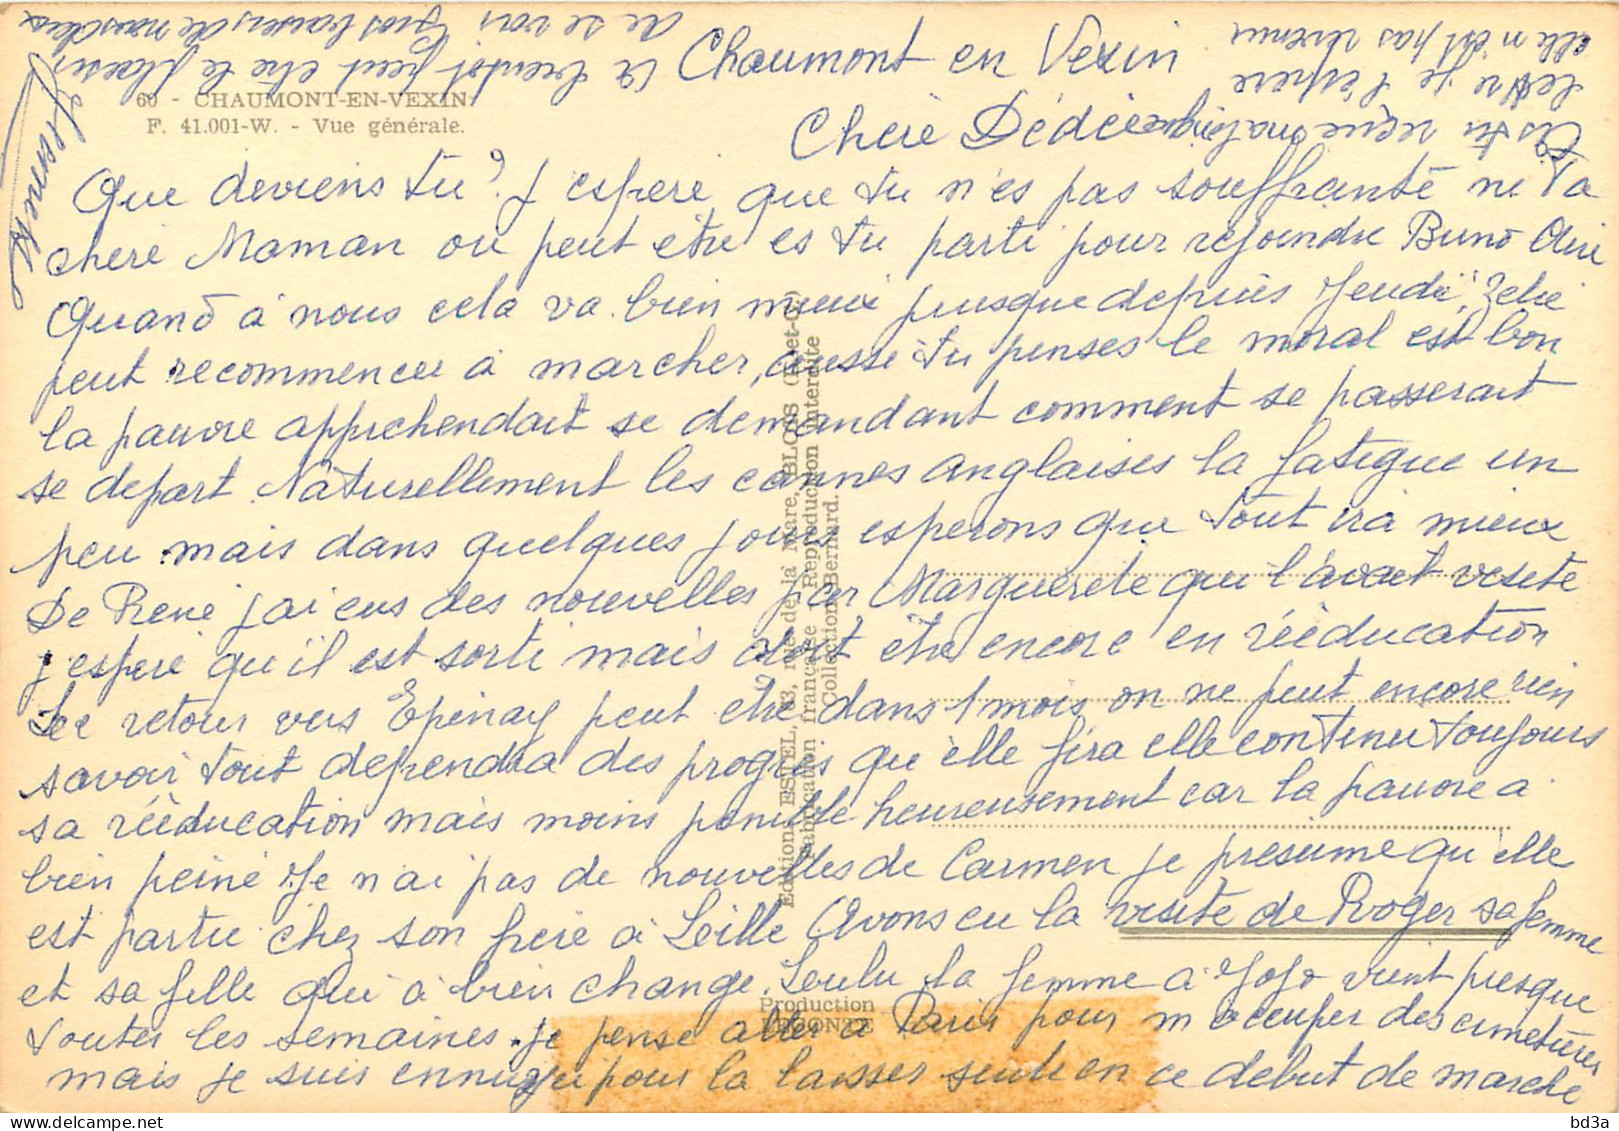 Chaumont en Vexin
60 - CHAUMONT-EN-VEXIN
F. 41.001-W. - Vue générale.
Chere Dédée
Que deviens tu? J espere que tu n'es pas souffrante ni Ta
chere Maman ou peut etre es tu parti pour rejoindre
Quand à nous cela va bien mieux puisque depuis Jeudi, Zelie
peut recommencer à marcher, aussi tu penses le moral est bon
la pauvre apprehendait se demandant comment se passerait
se depart. Naturellement les cannes anglaises la fatigue un
peu mais dans quelques jours esperons que tout ira mieux
De René j ai eus des nouvelles par Marguerite qui l'avait visité
j espere qu'il est sorti mais doit être encore en rééducation
Le retour vers Epinay peut etre dans 1 mois on ne peut encore rien
savoir tout dependra des progrès qu'elle fera elle continu toujours
sa rééducation mais moins penible heureusement car la pauvre a
bien peiné Je n ai pas de nouvelles de Carmen je presume qu'elle
est partie chez son frere à Lille Avons eu la visite de Roger sa femme
et sa fille qui a bien change. Loulu la femme à Jojo vient presque
toutes les semaines. je pense aller à Paris pour m occuper des cimetieres
mais je suis ennuyé pour la laisser seule en ce debut de marche
As tu reçue ma longue
lettre je l'espere
elle n'est pas revenue
A bientot peut etre le plaisir
de se voir Gros baisers de nous deux
Editions ESTEL, 63, rue de la Mare, BLOIS (L-et-C)
Fabrication française Reproduction interdite
Collection Bernard.
Production
LECONTE
bd3a